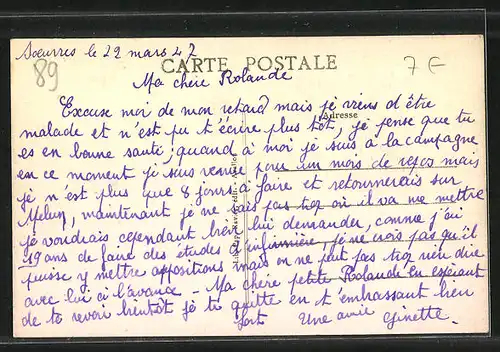 Soeurres le 22 mars 47
89
CARTE POSTALE
7 €
Ma chère Rolande
Adresse
Excuse moi de mon retard mais je viens d'être
malade et n'est pu t'écrire plus tôt, je pense que tu
es en bonne santé; quand à moi je suis à la campagne
en ce moment je suis venue pour un mois de repos mais
je n'est plus que 8 jours à faire et retournerais sur
Melun, maintenant je ne sais pas trop où il va me mettre
je voudrais cependant bien lui demander, comme j'ai
19 ans de faire des études d'infirmière, je ne crois pas qu'il
puisse y mettre appositions mais on ne peut pas trop rien dire
avec lui à l'avance - Ma chère petite Rolande en espérant
de te revoir bientôt je te quitte en t'embrassant bien
fort Une amie Ginette.